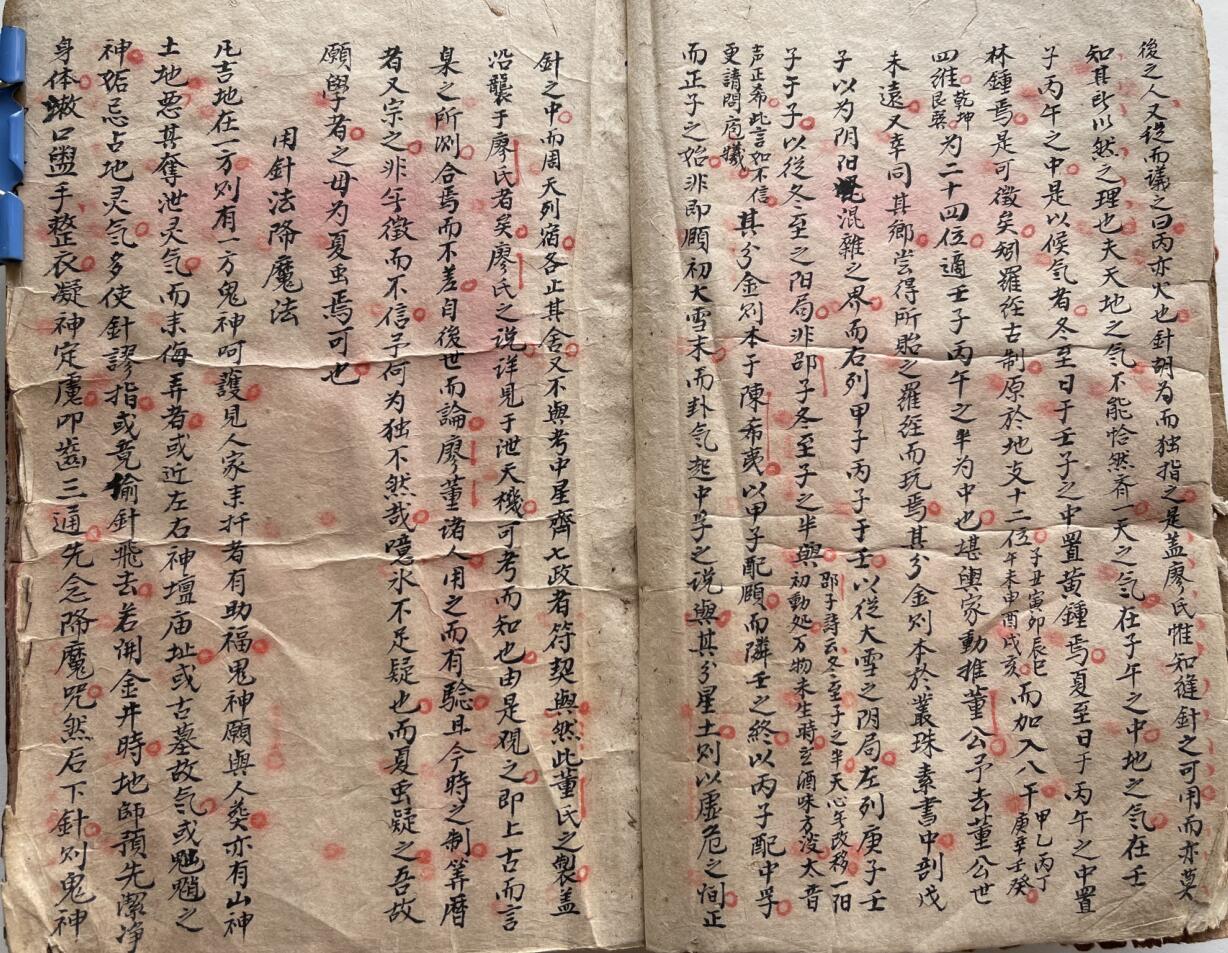 後之人又從而議之曰丙亦火也針胡為而独指之是盖廖氏惟知縫針之可用而亦莫
知其所以然之理也夫天地之气不能恰然斉一天之气在子午之中地之气在壬
子丙午之中是以候气者冬至日于壬子之中置黄鍾焉夏至日于丙午之中置
林鍾焉是可徵矣矧羅经古制原於地支十二位子丑寅卯辰巳午未申酉戌亥而加入八干甲乙丙丁庚辛壬癸
四维乾坤艮巽为二十四位適壬子丙午之半为中也堪輿家動推董公予去董公世
未遠又幸同其鄉尝得所貽之羅经而玩焉其分金则本於叢珠素書中剖戊
子以为阴阳混雜之界而右列甲子丙子于壬以從大雪之阴局左列庚子壬
子于子以從冬至之阳局非邵子冬至子之半與邵子詩云冬至子之半天心年改移一阳初動処万物未生時玄酒味方淡太音
声正希此言如不信更請問庖犧其分金则本于陳希夷以甲子配頤而隣壬之終以丙子配中孚
而正子之始非即頤初大雪末而卦气起中孚之说與其分星土则以虚危之间正
針之中而周天列宿各止其舍又不與考中星齊七政者符契與然此董氏之製盖
沿襲于廖氏者矣廖氏之说详見于泄天機可考而知也由是观之即上古而言
臬之所测合焉而不差自後世而論廖董诸人用之而有驗且今時之制筭曆
者又宗之非年徵而不信予何为独不然哉噫氷不足疑也而夏虫疑之吾故
願學者之毋为夏虫焉可也
用針法降魔法
凡吉地在一方则有一方鬼神呵護見人家来扦者有助福鬼神願與人葵亦有山神
土地恶甚奪泄灵气而来侮弄者或近左右神壇庙址或古墓故气或魑魈之
神妬忌占地灵气多使針謬指或竟偷針飛去若開金井時地師預先潔净
身体漱口盥手整衣凝神定慮叩齒三通先念降魔咒然后下針则鬼神